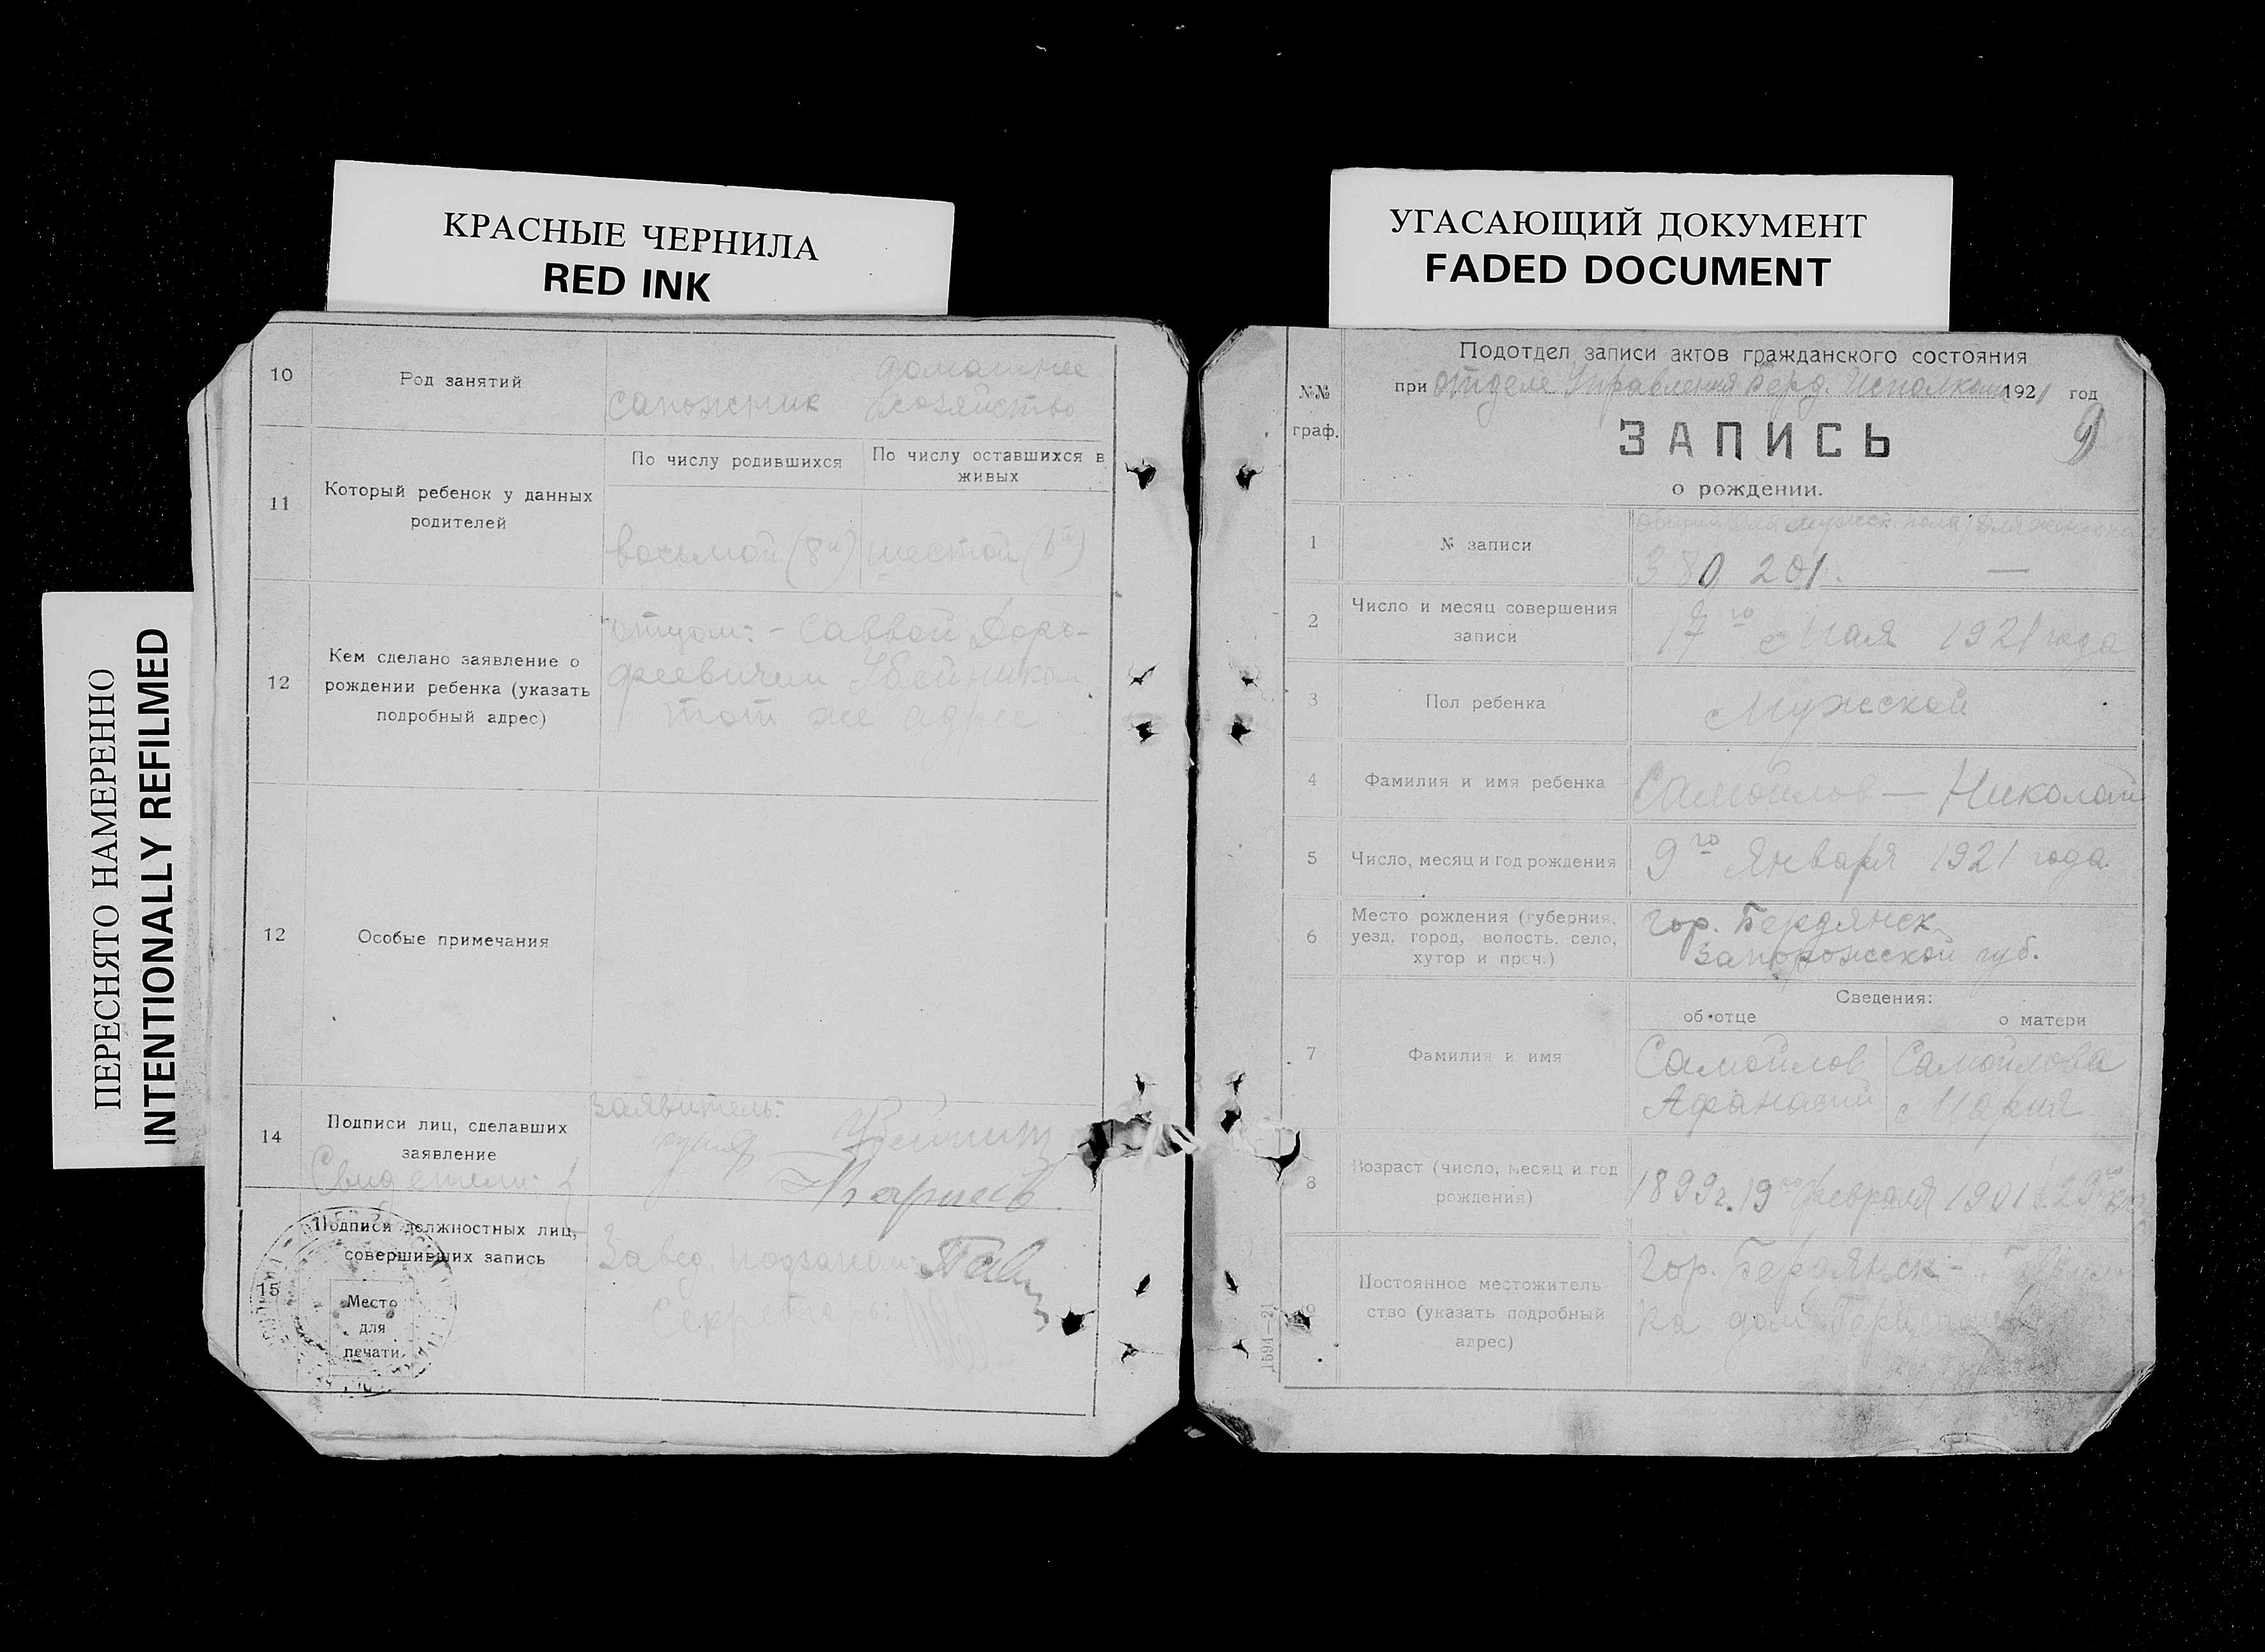 КРАСНЫЕ ЧЕРНИЛА
RED INK
УГАСАЮЩИЙ ДОКУМЕНТ
FADED DOCUMENT
ПЕРЕСНЯТО НАМЕРЕННО
INTENTIONALLY REFILMED
10
Род занятий
сапожник
домашнее
хозяйство
11
Который ребенок у данных
родителей
По числу родившихся
По числу оставшихся в
живых
восьмой (8й)
шестой (6й)
12
Кем сделано заявление о
рождении ребенка (указать
подробный адрес)
отцом: - Саввой Доро-
феевичем
тот же адрес
12
Особые примечания
14
Подписи лиц, сделавших
заявление
Свидетели:
заявитель:
15
Подписи должностных лиц,
совершивших запись
Место
для
печати
Завед
Подотдел записи актов гражданского состояния
при отделе Управления Берд. Исполкома 1921 год
№№
граф.
9
ЗАПИСЬ
о рождении.
1
№ записи
380 201. —
2
Число и месяц совершения
записи
17го Мая 1921 года
3
Пол ребенка
Мужской
4
Фамилия и имя ребенка
Самойлов — Николай
5
Число, месяц и год рождения
9го Января 1921 года.
6
Место рождения (губерния,
уезд, город, волость, село,
хутор и проч.)
гор. Бердянск
Запорожской губ.
Сведения:
об отце
о матери
7
Фамилия и имя
Самойлов
Афанасий
Самойлова
Мария
8
Возраст (число, месяц и год
рождения)
1899г. 19го февраля
1901
9
Постоянное местожитель-
ство (указать подробный
адрес)
гор. Бердянск-
1594—21